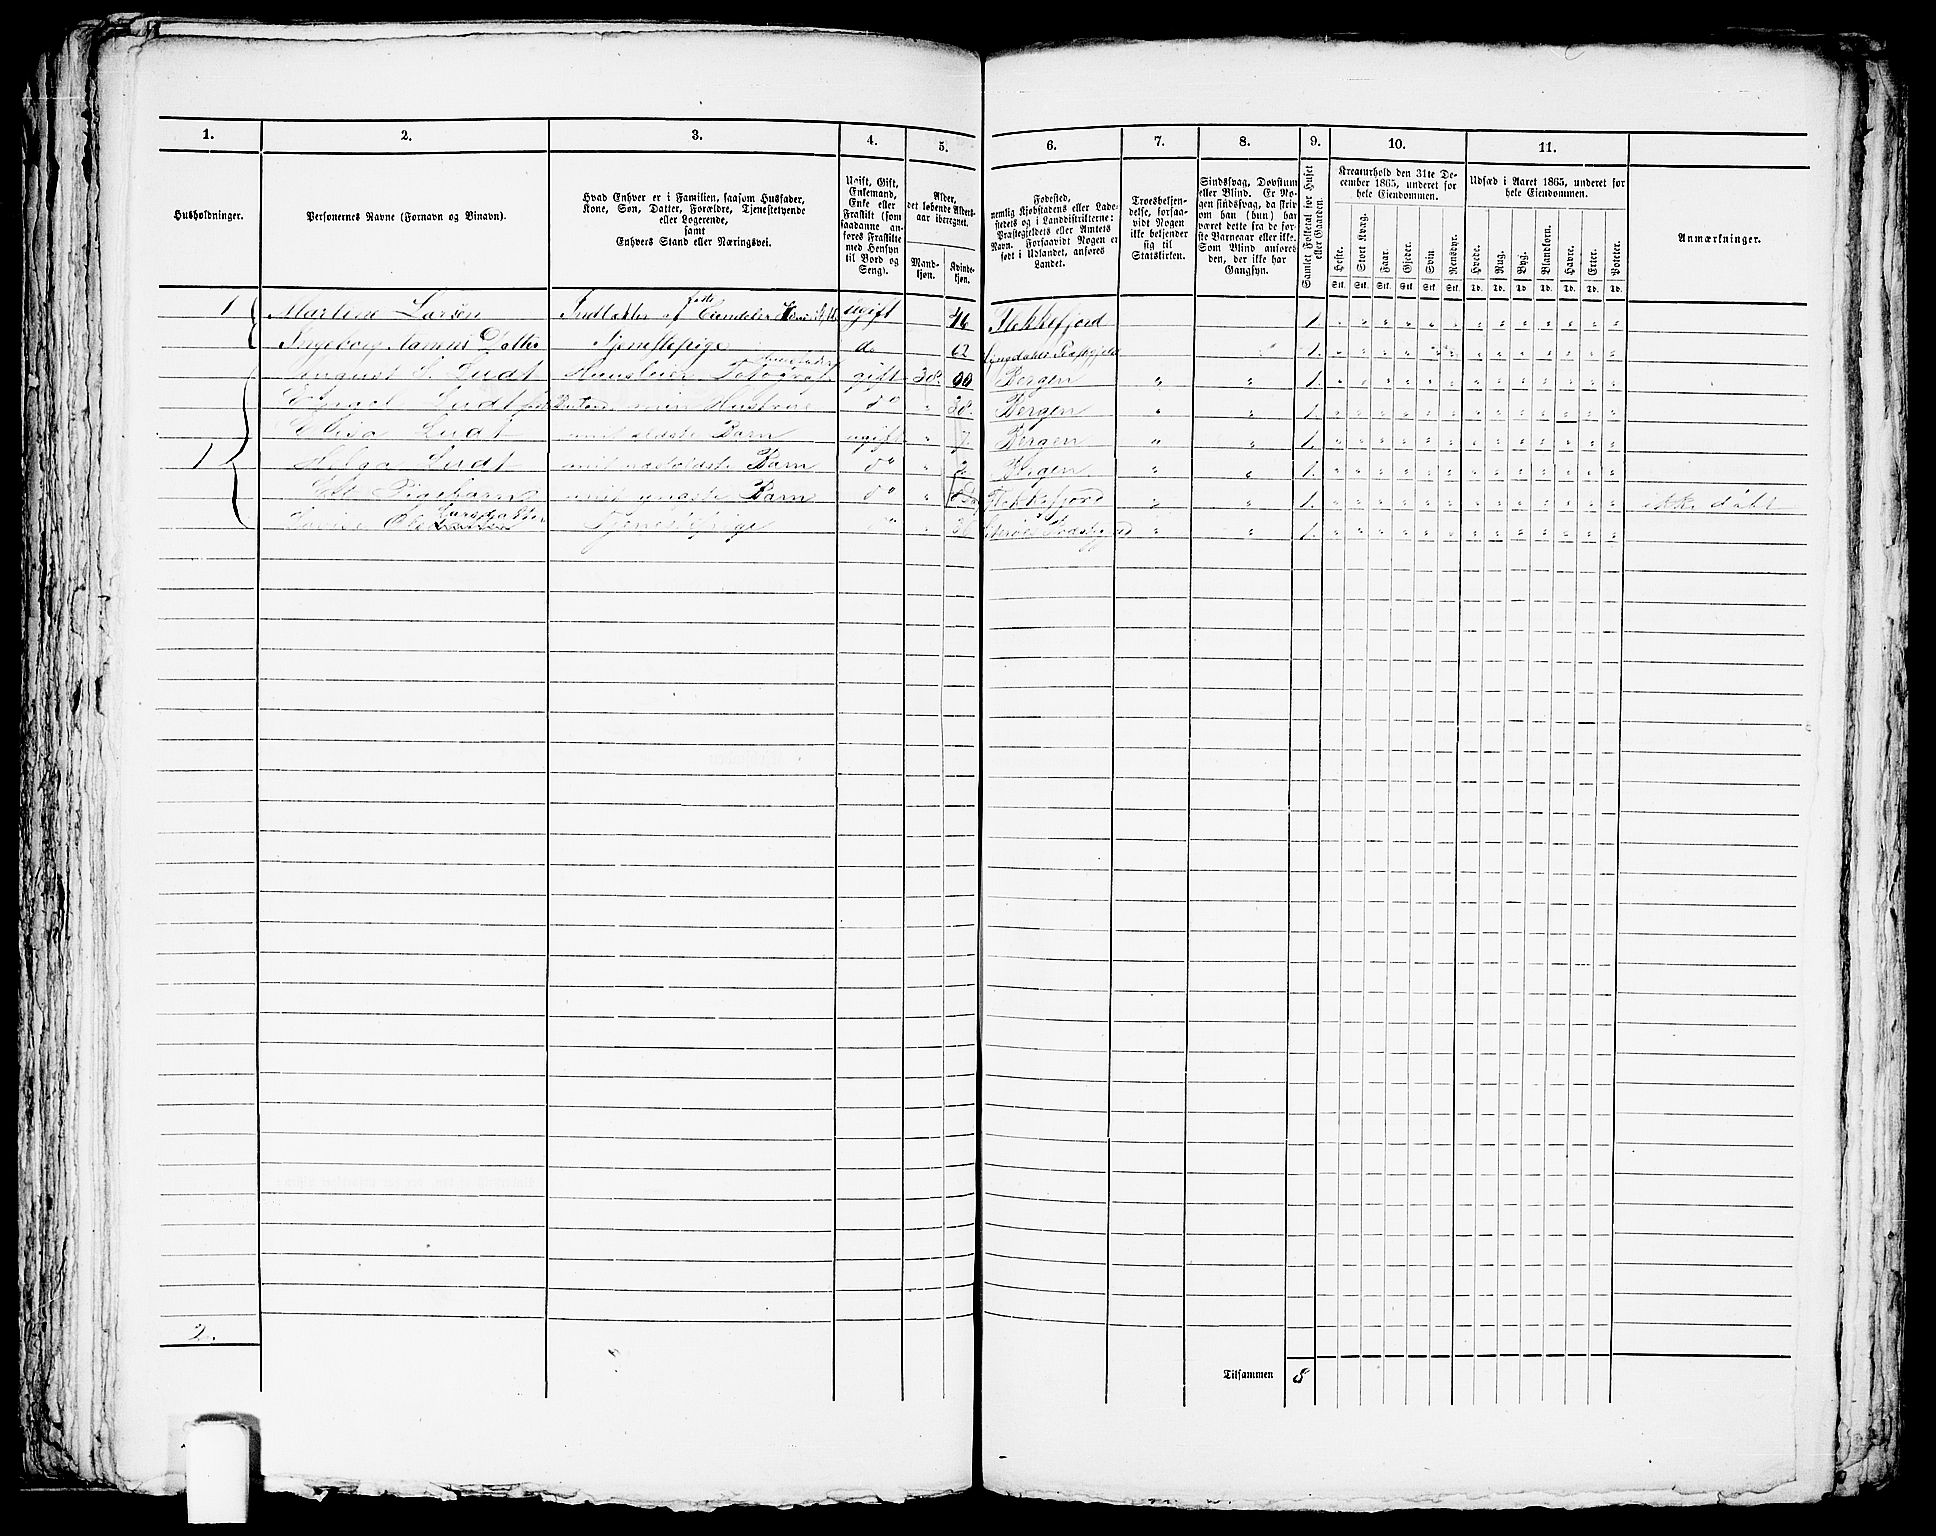 1. 2. 3. 4. 5. 6. 7. 8. 9. 10. 11.
Husholdninger.
Personernes Navne (Fornavn og Binavn).
Hvad Enhver er i Familien, saasom Husfader,
Kone, Søn, Datter, Forældre, Tjenestetyende
eller Logerende,
samt
Enhvers Stand eller Næringsvei.
Ugift, Gift,
Enkemand,
Enke eller
Fraskilt (som
saadanne an-
føres Fraskilte
med Hensyn
til Bord og
Seng).
Alder,
det løbende Alders-
aar iberegnet.
Mand-
kjøn.
Kvinde-
kjøn.
Fødested,
nemlig Kjøbstadens eller Lade-
stedets og i Landdistrikterne:
Præstegjeldets eller Amtets
Navn. Forsaavidt Nogen er
født i Udlandet, anføres
Landet.
Troesbekjen-
delse, forsaa-
vidt Nogen
ikke bekjender
sig til
Statskirken.
Sindssvag, Døvstum
eller Blind. Er No-
gen sindssvag, da skriv
om han (hun) har
været dette fra de før-
ste Barneaar eller ikke.
Som Blind anføres
den, der ikke har
Gangsyn.
Samlet Folketal for Huset
eller Gaarden.
Kreaturhold den 31te De-
cember 1865, underet for
hele Eiendommen.
Heste. Stort Kvæg. Faar. Gjeder. Svin Rensdyr.
Stk. Stk. Stk. Stk. Stk. Stk.
Udsæd i Aaret 1865, underet for
hele Eiendommen.
Hvede. Rug. Byg. Blandkorn. Havre. Erter. Poteter.
Td. Td. Td. Td. Td. Td. Td.
Anmærkninger.
1 Martine Larsen af Ugift 46 Flekkefjord 1.
Ingeborg Datter Tjenestepige do 62 1.
August S. Ludt gift 38. Bergen " " 1.
Ludt min Hustroe do " 38. Bergen " " 1.
Elisa Ludt mit ældste Barn ugift " 7. Bergen " " 1.
1 Helga Ludt mit næstældste Barn do " 2 Bergen " " 1.
Et Pigebarn mit yngste Barn do " Flekkefjord " " 1. ikke døbt
Tjenestepige do " " " 1.
2.
Tilsammen 8